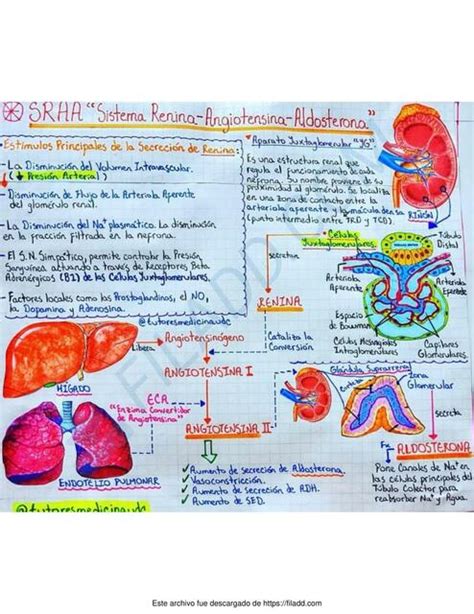 SRAA "Sistema Renina-Angiotensina-Aldosterona"
• Estímulos Principales de la Secreción de Renina:
- La Disminución del Volumen Intravascular.
(↓ Presión Arterial)
- Disminución de Flujo de la Arteriola Aferente
del glomérulo renal.
- La Disminución del Na⁺ plasmático. La disminución
en la fracción filtrada en la nefrona.
- El S.N. Simpático, permite controlar la Presión
Sanguínea actuando a través de Receptores Beta
Adrenérgicos (B1) de las Células Yuxtaglomerulares.
- Factores locales como las Prostaglandinas, el NO,
la Dopamina y Adenosina.
@tutoresmedicinaudc
• Aparato Yuxtaglomerular "YG"
Es una estructura renal que
regula el funcionamiento de cada
nefrona. Su nombre proviene de su
proximidad al glomérulo. Se localiza
en una zona de contacto entre la
arteriola aferente y la mácula densa
(punto intermedio entre TRD y TCD).
RIÑÓN
Células
Yuxtaglomerulares
Túbulo
Distal
secretan
RENINA
Arteriola
Aferente
Arteriola
Eferente
Espacio
de Bowman
Células Mesangiales
Intraglomerulares
Capilares
Glomerulares
HÍGADO
Libera
Angiotensinógeno
Cataliza la
Conversión
ANGIOTENSINA I
ECA
"Enzima Convertidor
de Angiotensina"
ENDOTELIO PULMONAR
ANGIOTENSINA II
✓ Aumento de secreción de Aldosterona.
✓ Vasoconstricción.
✓ Aumento de secreción de ADH.
✓ Aumento de SED.
Glándula Suprarrenal
Corteza
Zona
Glomerular
secreta
ALDOSTERONA
Pone Canales de Na⁺ en
las células principales del
Túbulo Colector para
reabsorber Na⁺ y Agua.
@tutoresmedicinaudc
Este archivo fue descargado de https://filadd.com